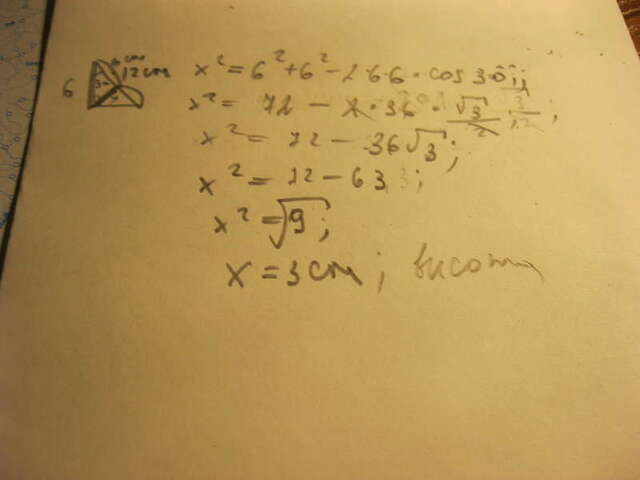 6 12cm x² = 6² + 6² - 2·6·6 · cos 30°;
x² = 72 - 2 · 36 · √3/2;
x² = 72 - 36√3;
x² = 72 - 63;
x² = √9;
x = 3 cm; висота